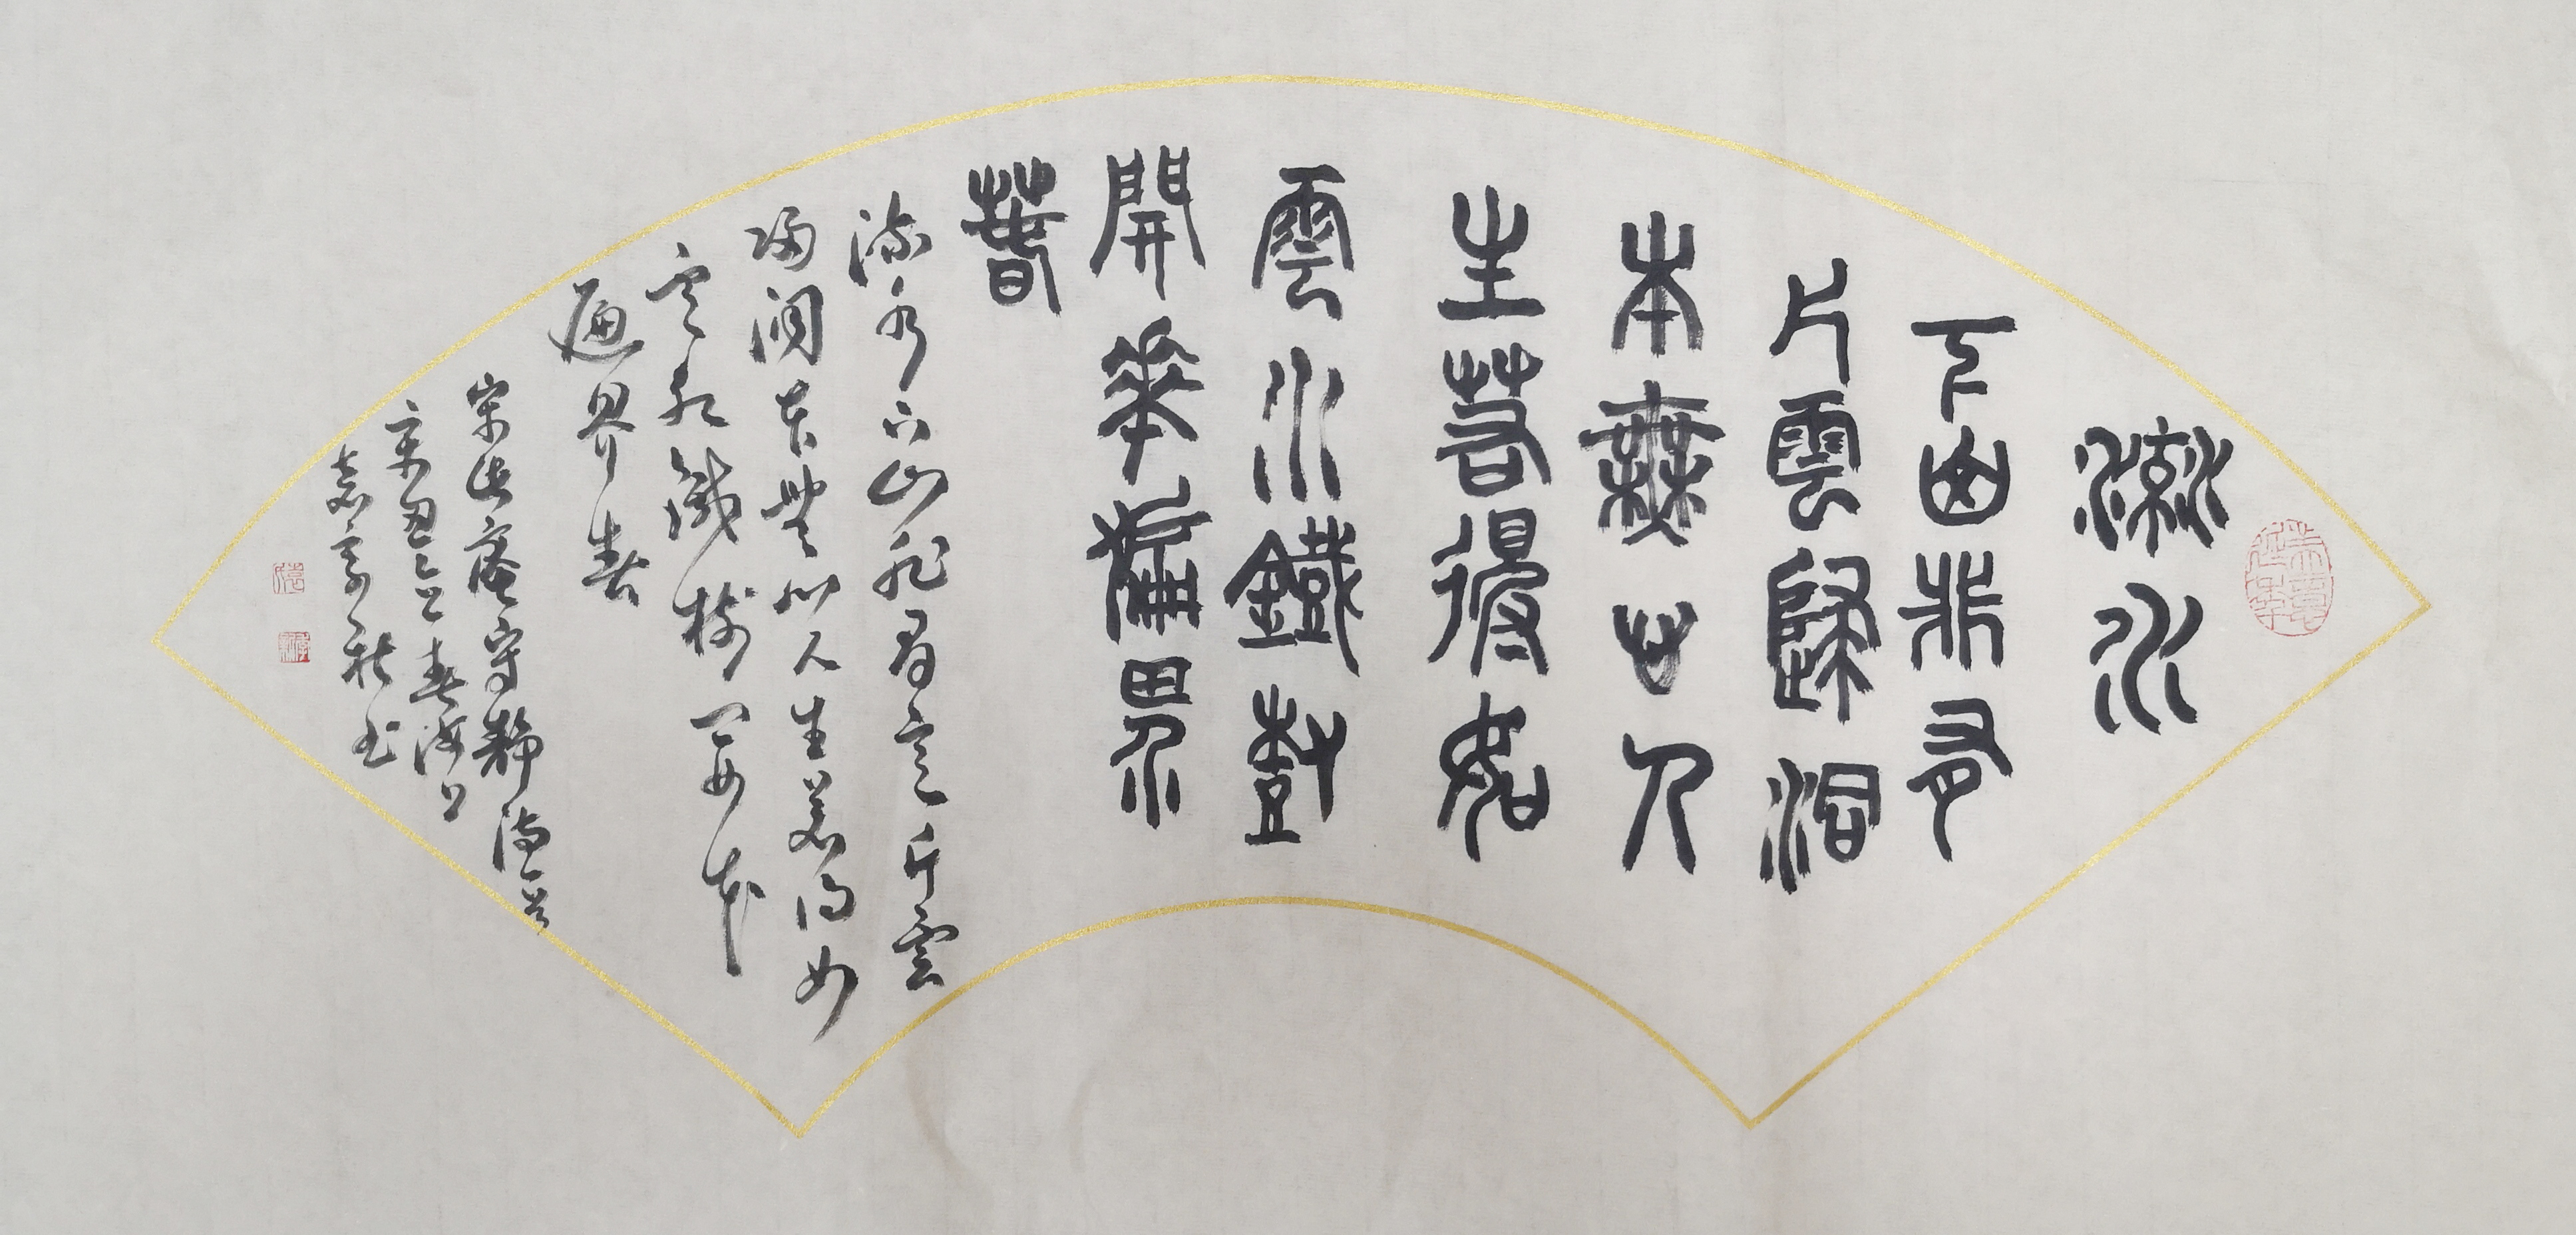 流水
下山非有
片雲歸洞
本無心人
生若得如
雲水鐵樹
開華徧界
萅
流水下山非有意片雲
歸洞本無心人生若得如
雲水鐵樹開花
遍界春
宋此庵守靜詩一首
辛丑春
書